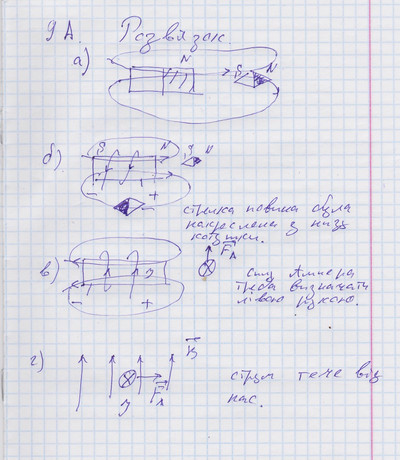 9А. Розв'язок
а) N S N
б) S N S N
- + -
стрілка повина була
накреслена з низу
котушки.
в) I F A
- +
силу Ампера
треба визначати
лівою рукою.
г) B
I F A
струм тече від
нас.